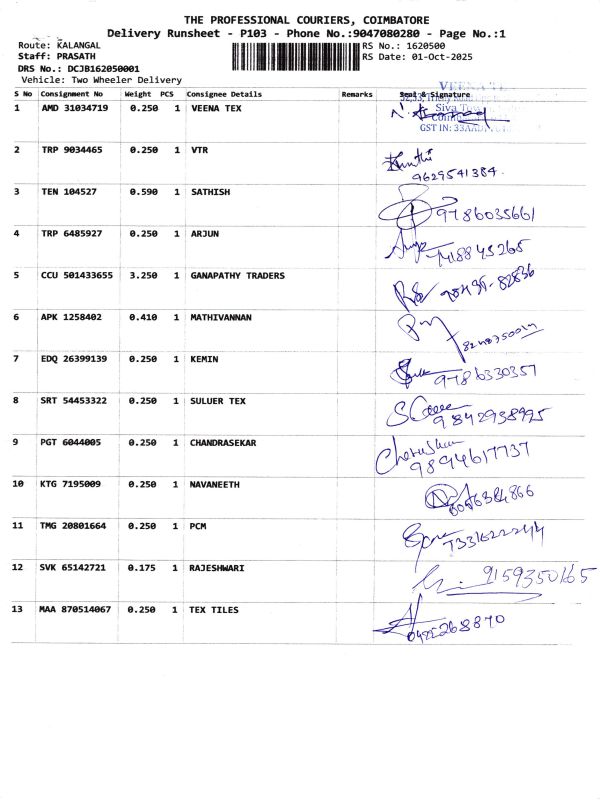 THE PROFESSIONAL COURIERS, COIMBATORE
Delivery Runsheet - P103 - Phone No.:9047080280 - Page No.:1
Route: KALANGAL RS No.: 1620500
Staff: PRASATH RS Date: 01-Oct-2025
DRS No.: DCJB162050001
Vehicle: Two Wheeler Delivery
S No Consignment No Weight PCS Consignee Details Remarks Seal & Signature
VEENA TEX
1 AMD 31034719 0.250 1 VEENA TEX
GST IN: 33AADF
2 TRP 9034465 0.250 1 VTR
9629541384
3 TEN 104527 0.590 1 SATHISH
9786035661
4 TRP 6485927 0.250 1 ARJUN
7418845265
5 CCU 501433655 3.250 1 GANAPATHY TRADERS
98439-82836
6 APK 1258402 0.410 1 MATHIVANNAN
7 EDQ 26399139 0.250 1 KEMIN
9786330357
8 SRT 54453322 0.250 1 SULUER TEX
9842938995
9 PGT 6044005 0.250 1 CHANDRASEKAR
9894617737
10 KTG 7195009 0.250 1 NAVANEETH
8056384866
11 TMG 20801664 0.250 1 PCM
12 SVK 65142721 0.175 1 RAJESHWARI
9159350165
13 MAA 870514067 0.250 1 TEX TILES